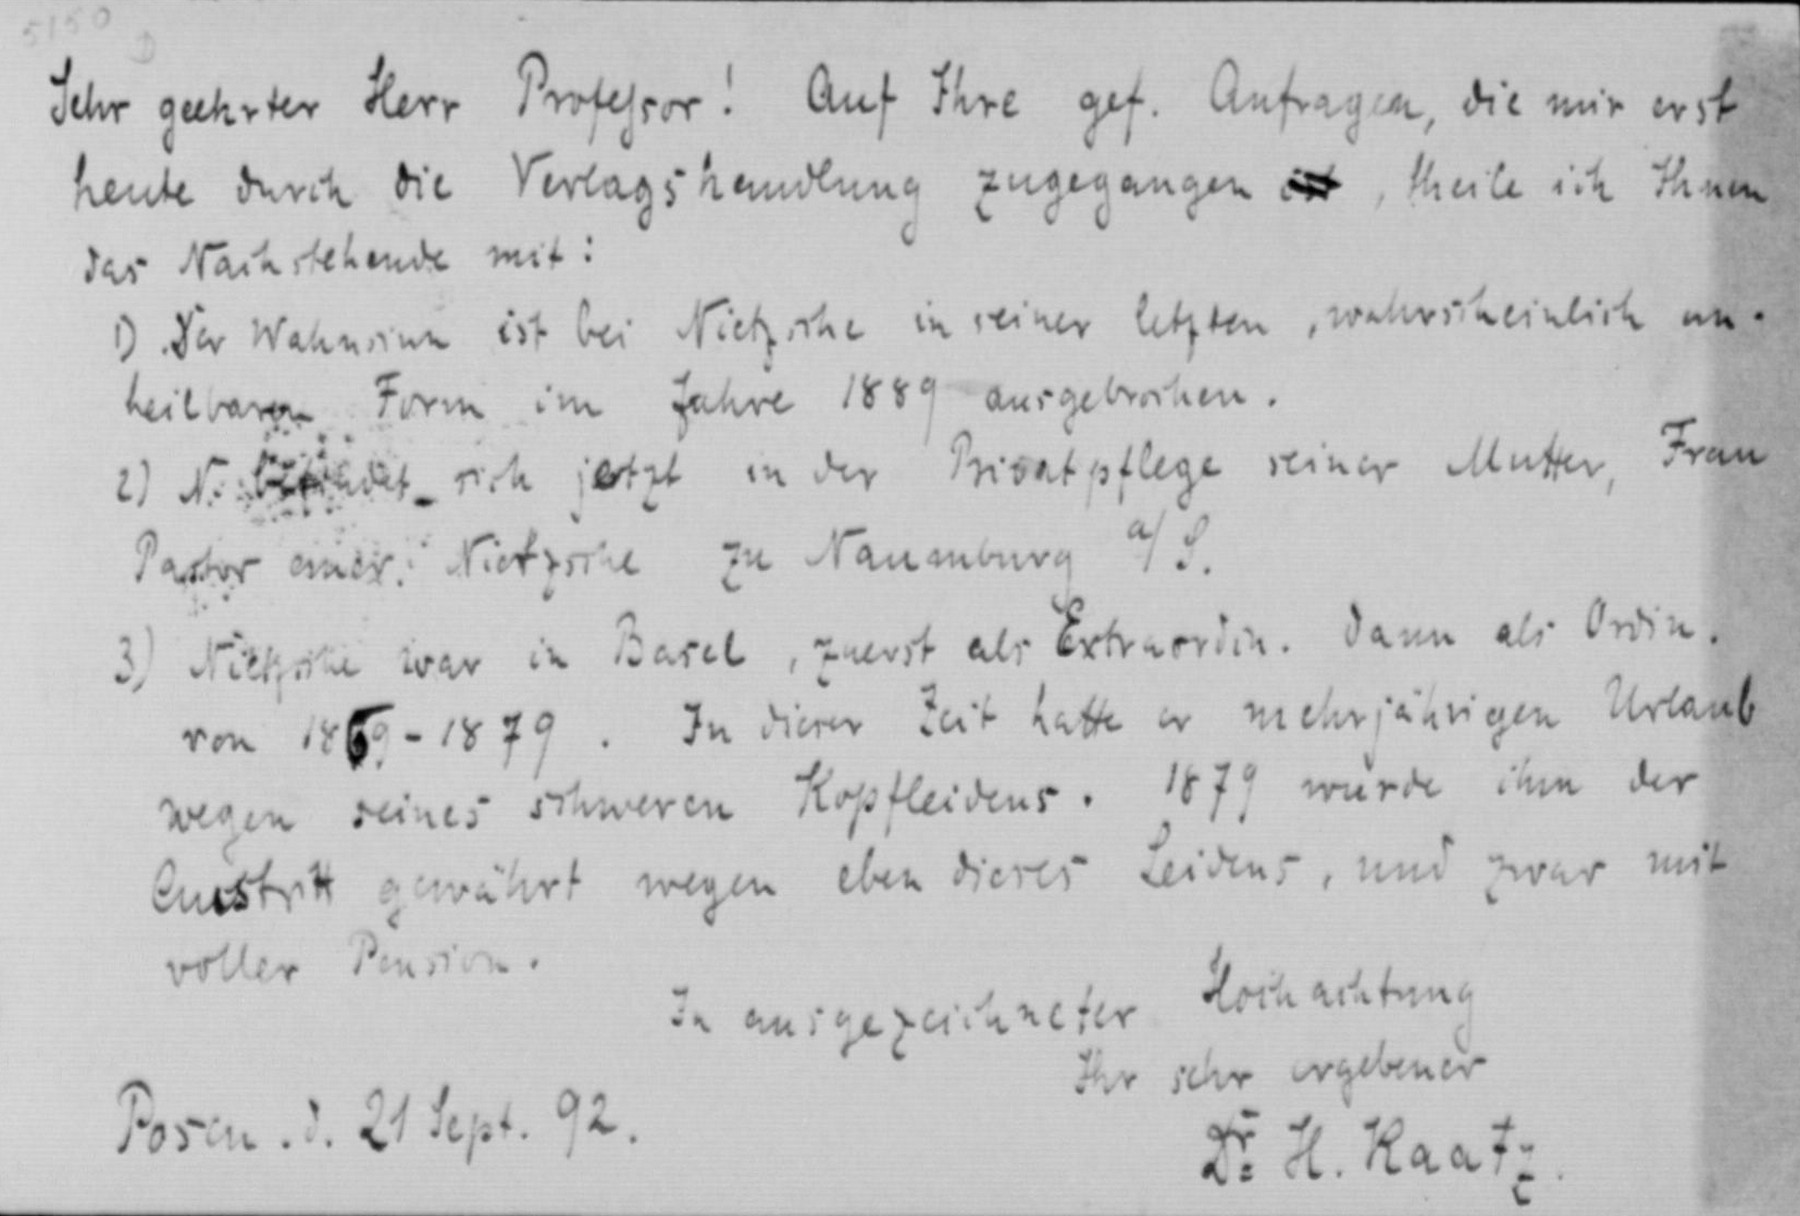 5150
D
Sehr geehrter Herr Professor! Auf Ihre gef. Anfragen, die mir erst
heute durch die Verlagshandlung zugegangen ist, theile ich Ihnen
das Nachstehende mit:
1) Der Wahnsinn ist bei Nietzsche in seiner letzten, wahrscheinlich un-
heilbaren Form im Jahre 1889 ausgebrochen.
2) N. befindet sich jetzt in der Privatpflege seiner Mutter, Frau
Pastor emer. Nietzsche zu Naumburg a/S.
3) Nietzsche war in Basel, zuerst als Extraordin. dann als Ordin.
von 1869-1879. In dieser Zeit hatte er mehrjährigen Urlaub
wegen seines schweren Kopfleidens. 1879 wurde ihm der
Austritt gewährt wegen eben dieses Leidens, und zwar mit
voller Pension.
In ausgezeichneter Hochachtung
Ihr sehr ergebener
Dr. H. Kaatz.
Posen. d. 21 Sept. 92.